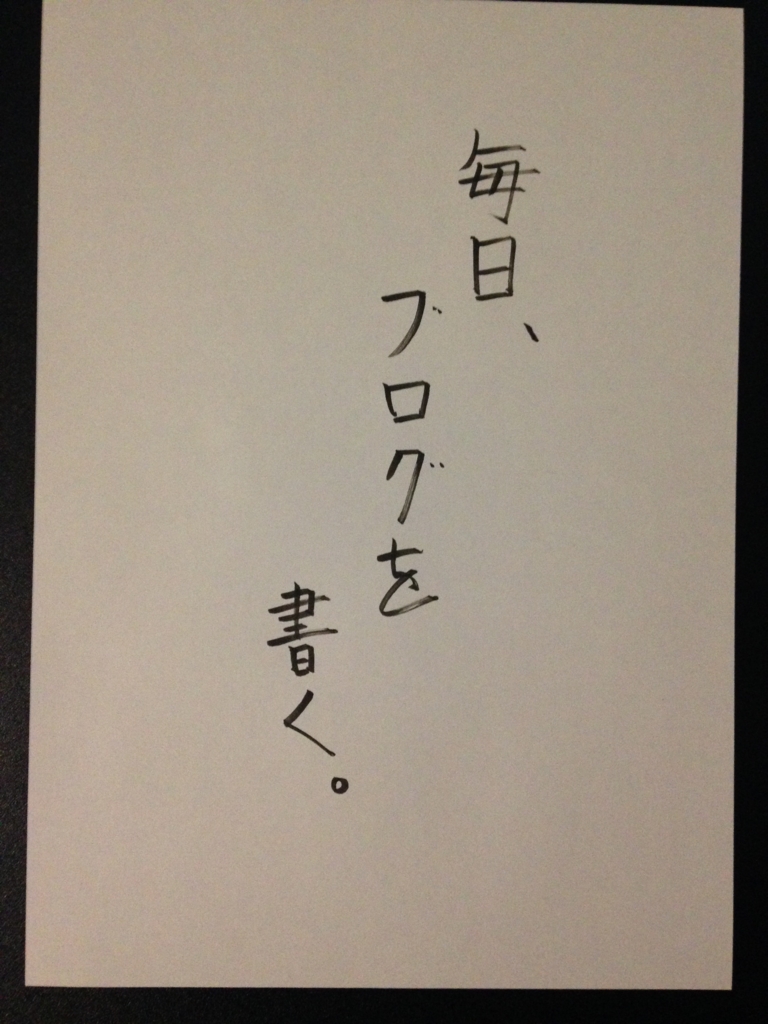 毎日、
ブログを
書く。